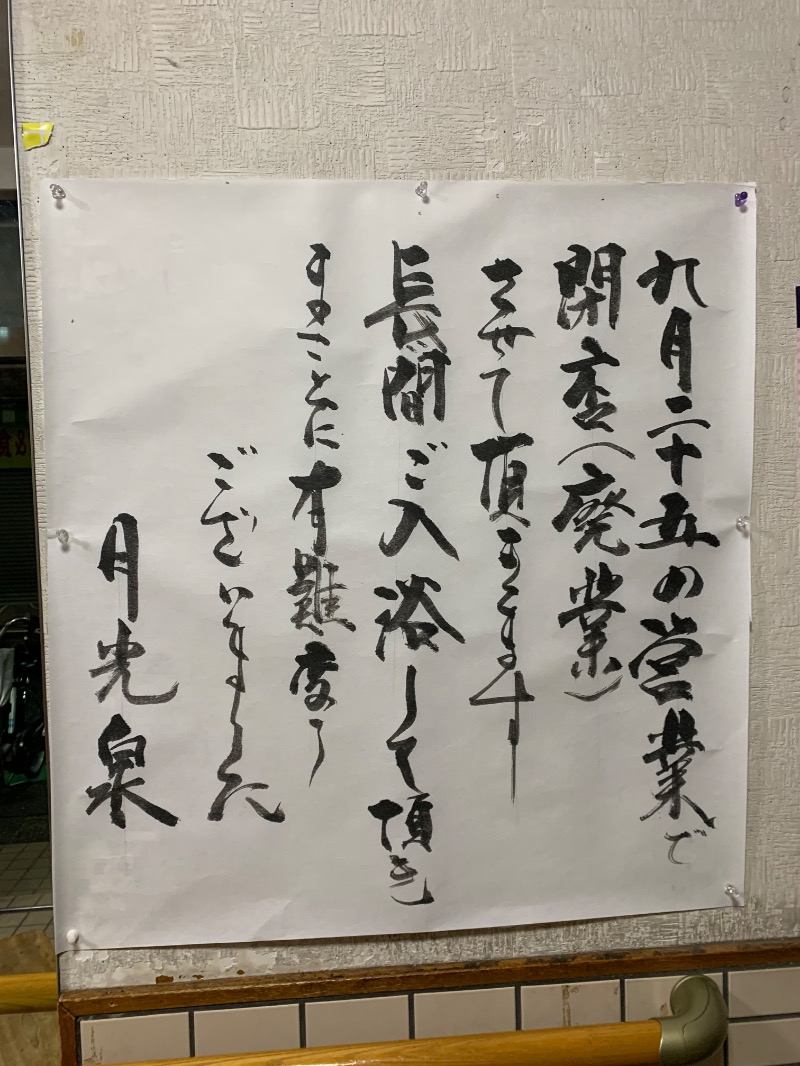 九月二十五の営業で
閉店（廃業）
させて頂きます
長間ご入浴して頂き
まことに有難度う
ございました
月光泉